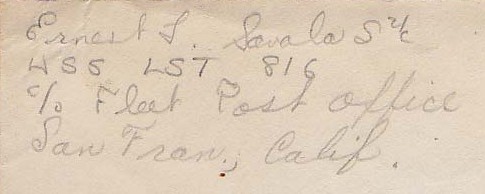 Ernest L. Savala S 2/c
USS LST 816
c/o Fleet Post Office
San Fran., Calif.